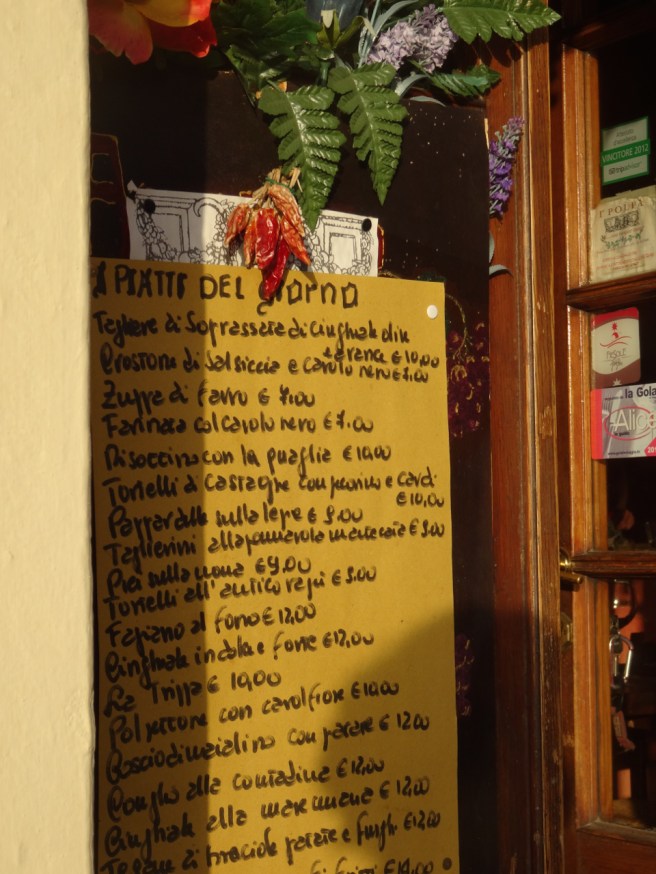 I PIATTI DEL giorno
Tagliere di Soprassata di Cinghiale di
taranea € 10,00
Crostone di Salsiccia e cavolo nero € 7,00
Zuppa di farro € 7,00
Farinata col cavolo nero € 7,00
Risottino con la quaglia € 10,00
Tortelli di Castagne con pecorino e cardi
€ 10,00
Pappardelle sulla lepre € 9,00
Taglierini alla € 9,00
Pici sulla nona € 9,00
Tortelli all'antico ragù € 9,00
Fagiano al forno € 12,00
Cinghiale in dolce e forte € 12,00
La Trippa € 10,00
Polpettone con cavolfiore € 10,00
con patate € 12,00
Coniglio alla contadina € 12,00
Cinghiale alla maremmana € 12,00
Tegame di braciole patate e funghi € 12,00
€ 14,00
VINCITORE 2012
la Gola
Alice